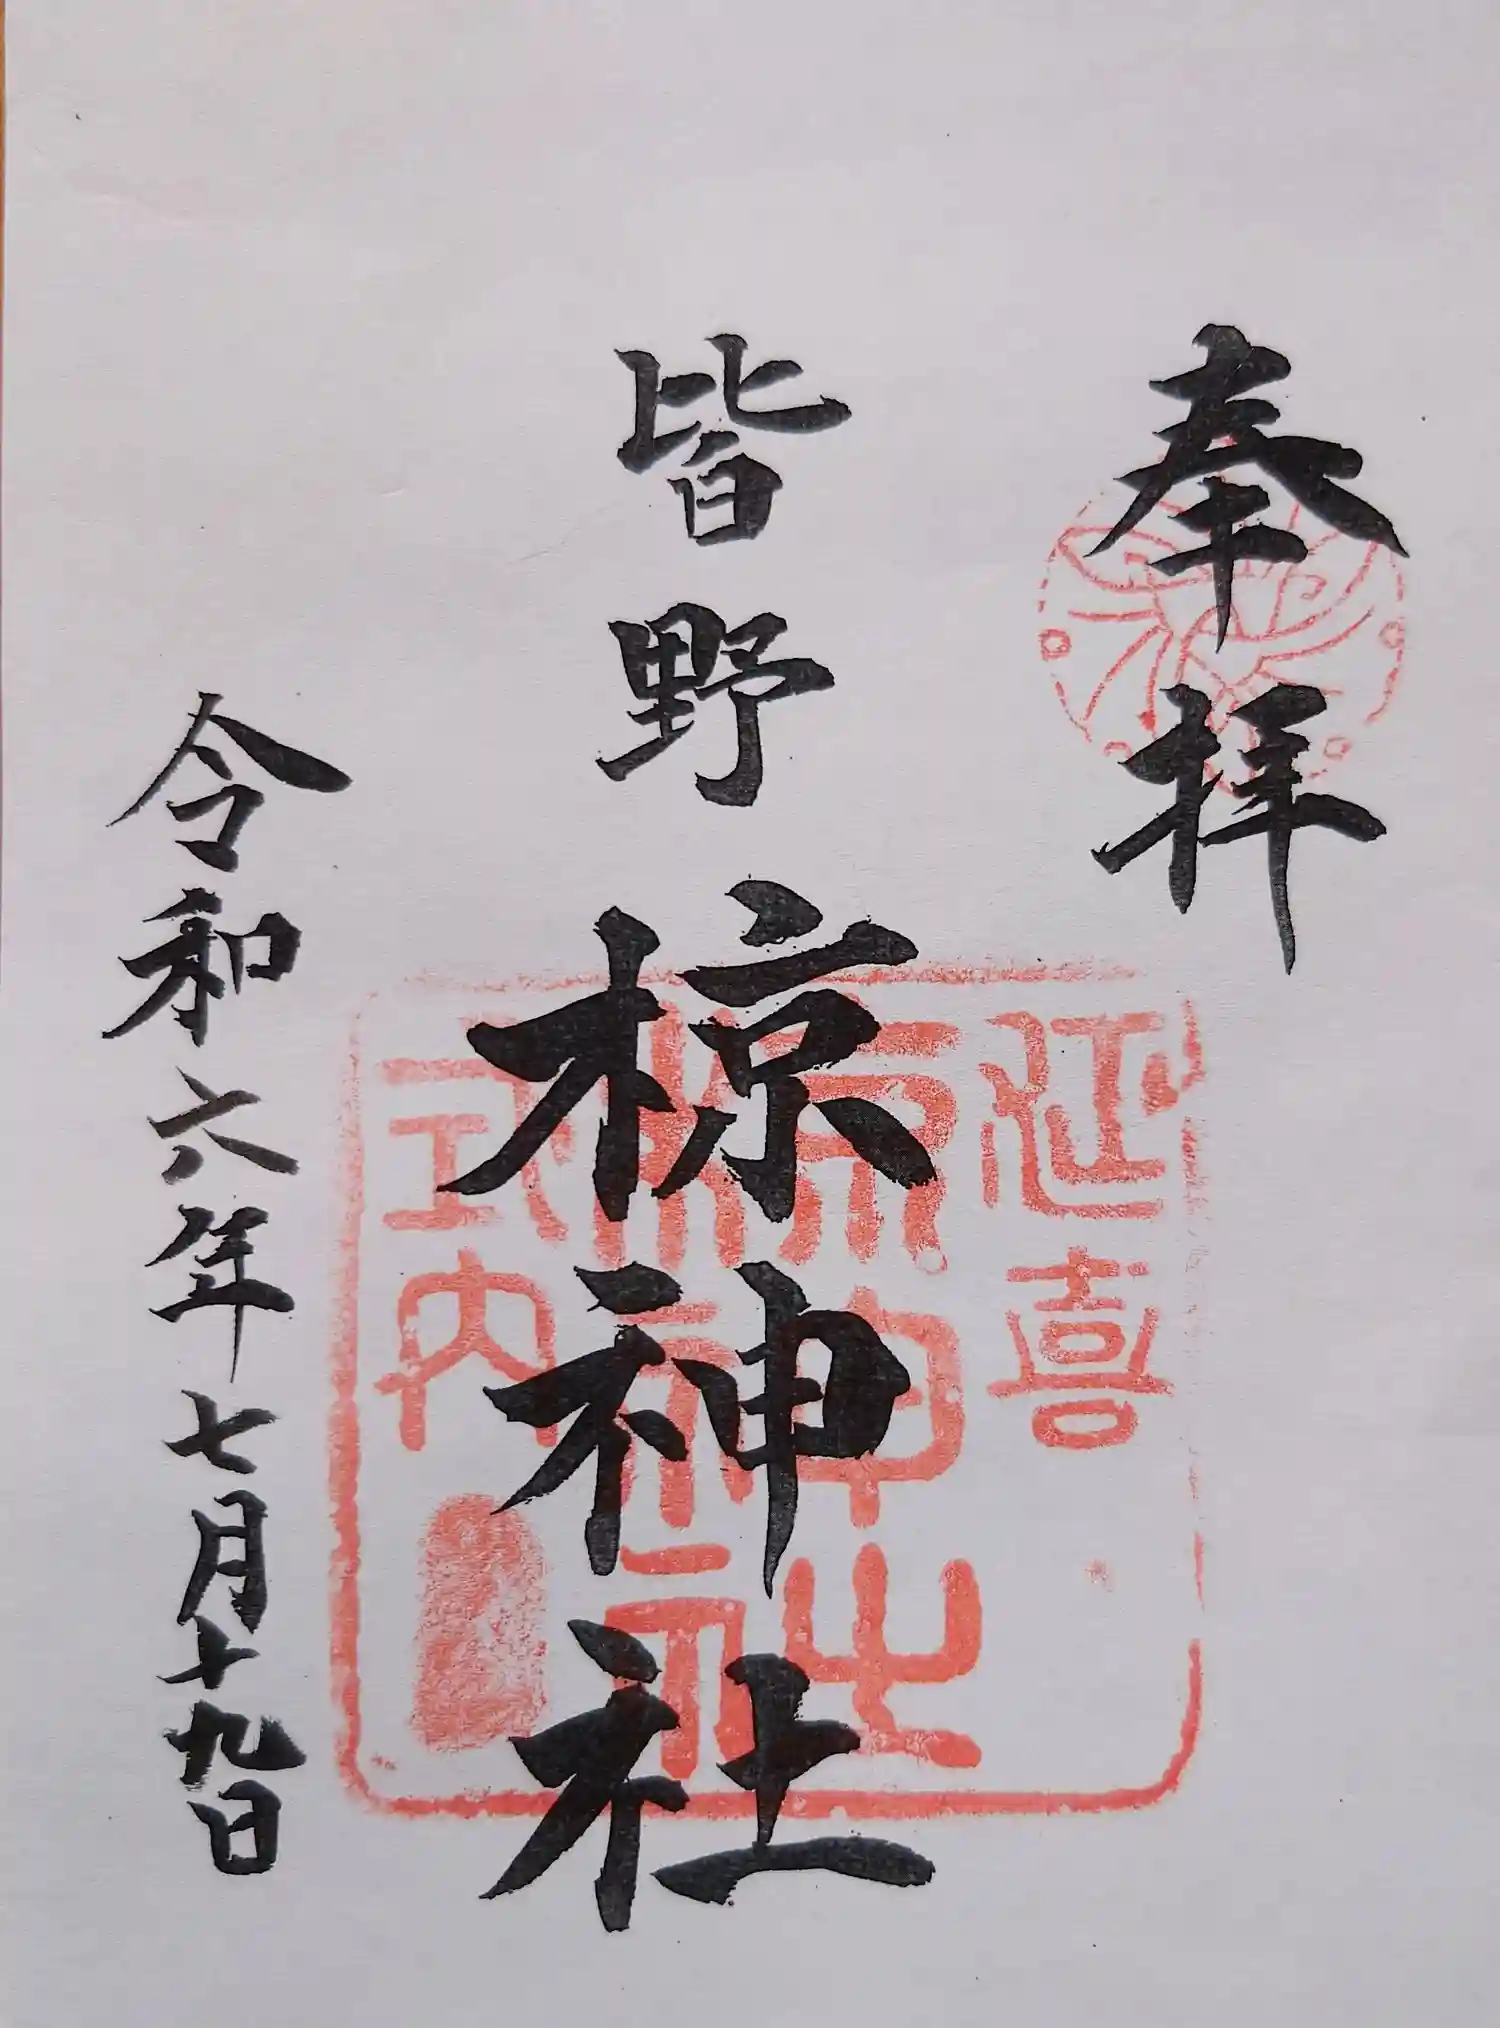 奉拝
皆野椋神社
令和六年七月十九日
延喜
椋神社
式内